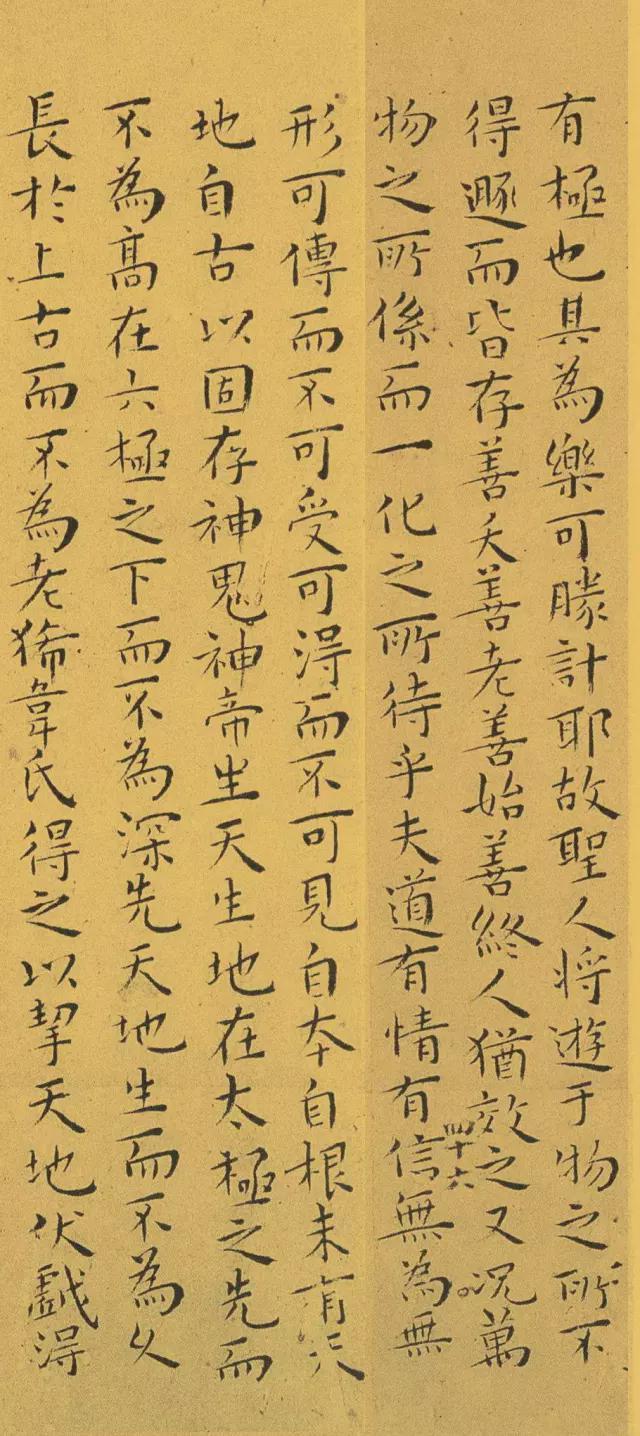 有極也其為樂可勝計耶故聖人將遊于物之所不
得遯而皆存善夭善老善始善終人猶效之又況萬
物之所係而一化之所待乎夫道有情有信無為無
四十六
形可傳而不可受可得而不可見自本自根未有天
地自古以固存神鬼神帝生天生地在太極之先而
不為高在六極之下而不為深先天地生而不為久
長於上古而不為老狶韋氏得之以挈天地伏戲得